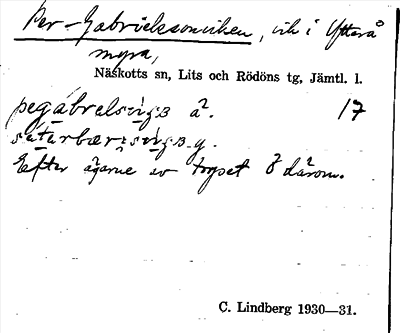 Per-Gabrielsonviken, vik i Ytterå
myra,
Näskotts sn, Lits och Rödöns tg, Jämtl. l.
pegábrelsvıgɜ a². 17
Efter ägarne av torpet Ö därom.
C. Lindberg 1930—31.